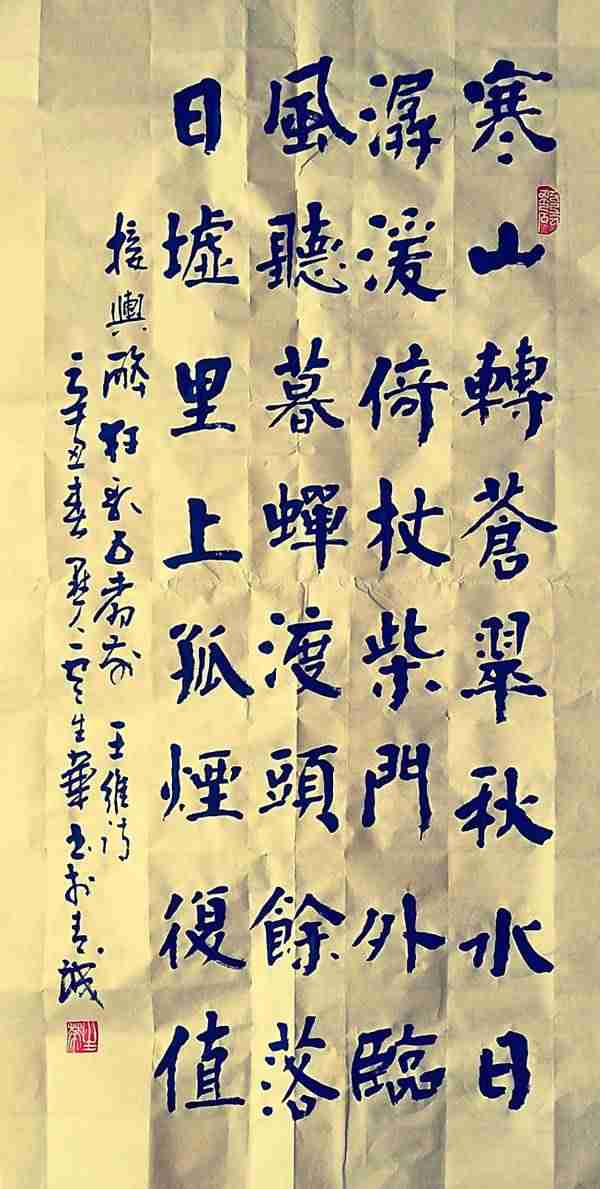 寒山轉蒼翠秋水日
潺湲倚杖柴門外臨
風聽暮蟬渡頭餘落
日墟里上孤煙復值
接輿醉狂歌五柳前 王維詩
辛丑春 生華書於青城